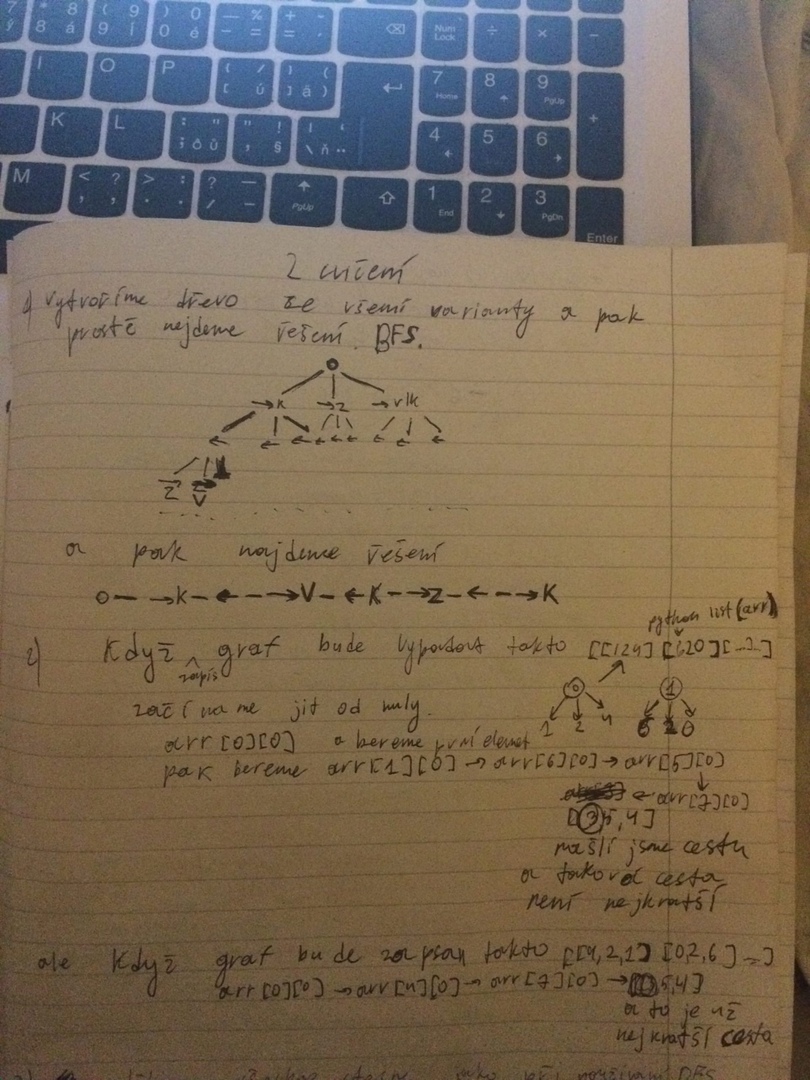 7 8 9 0 % + = ⌫ Num Lock ÷ × −
I O P ú ) 7 Home 8 9 PgUp +
K L ů § ň 4 5 6
M < , ? > . : ? / − PgUp 1 End 2 3 PgDn
Enter
2 cvičení
1) vytvoříme dřevo ze všemi varianty a pak
prostě nejdeme řešení. BFS.
→k →z →v/k
← ← ← ← ← ← ← ← ←
z z
v
a pak najdeme řešení
o– →k– ← – →V– ←K– →Z– ← – →K
python list (arr)
2) Když zápis graf bude vypadat takto [[124] [620] [...]]
0 1
1 2 4 6 2 0
začínáme jit od nuly.
arr[0][0] a bereme první element
pak bereme arr[1][0] → arr[6][0] → arr[5][0]
← arr[7][0]
[3,5,4]
našli jsme cestu
a taková cesta
není nejkratší
ale Když graf bude zapsan takto [[4,2,1] [0,2,6] ...]
arr[0][0] → arr[4][0] → arr[7][0] → [,5,4]
a to je už
nejkratší cesta
DFS